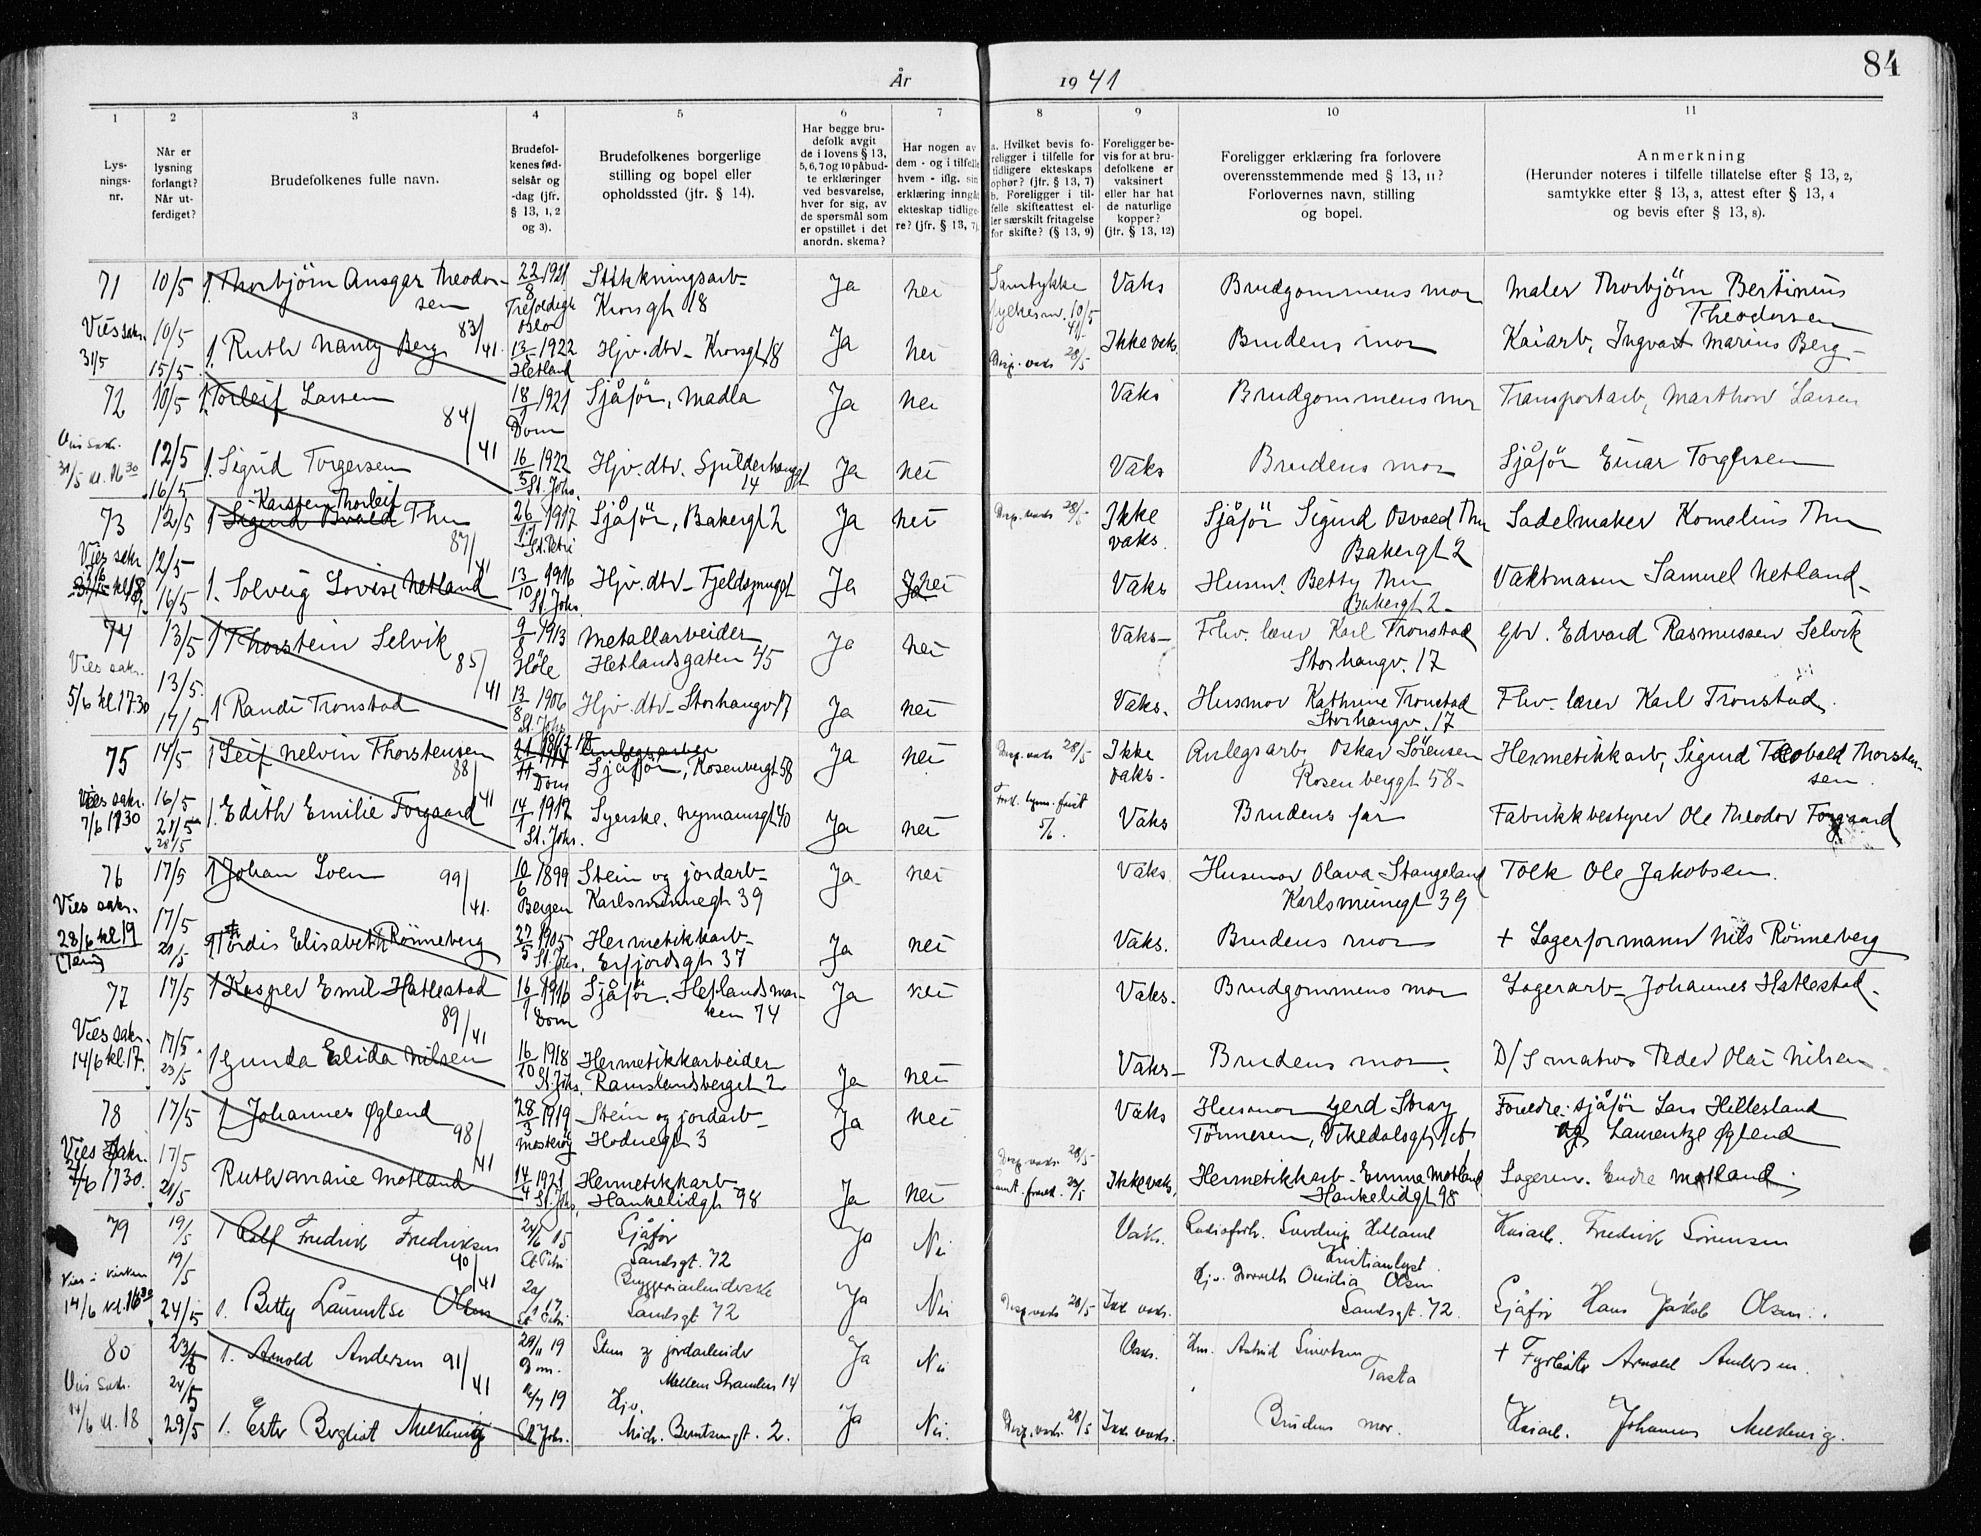 84
År 1941
1 2 3 4 5 6 7 8 9 10 11
Lysningsnr.
Når er lysning forlangt? Når utferdiget?
Brudefolkenes fulle navn.
Brudefolkenes fødselsår og -dag (jfr. § 13, 1, 2 og 3).
Brudefolkenes borgerlige stilling og bopel eller opholdssted (jfr. § 14).
Har begge brudefolk avgit de i lovens § 13, 5, 6, 7 og 10 påbudte erklæringer ved besvarelse, hver for sig, av de spørsmål som er opstillet i det anordn. skema?
Har nogen av dem - og i tilfelle hvem - iflg. sin erklæring inngått ekteskap tidligere? (jfr. § 13, 7).
a. Hvilket bevis foreligger i tilfelle for tidligere ekteskaps ophør? (jfr. § 13, 7)
b. Foreligger i tilfelle skifteattest eller særskilt fritagelse for skifte? (§ 13, 9)
Foreligger bevis for at brudefolkene er vaksinert eller har hat de naturlige kopper? (jfr. § 13, 12)
Foreligger erklæring fra forlovere overensstemmende med § 13, 11? Forlovernes navn, stilling og bopel.
Anmerkning
(Herunder noteres i tilfelle tillatelse efter § 13, 2, samtykke efter § 13, 3, attest efter § 13, 4 og bevis efter § 13, 8).
71 10/5 Thorbjørn Ansgar Theodorsen 22/8 1921 Oslo Krosgt 18 Ja nei Samtykke 10/5 41 Vaks Brudgommens mor Maler Thorbjørn Bertinius Theodorsen
Vies sakr. 31/5 10/5 15/5 1. Ruth Nancy Berg 83/41 13/5 1922 Hetland Hjv. dtr. Krosgt 18 Ja nei Disp. vaks 28/5 Ikke vaks. Brudens mor Kaiarb. Ingvart Marius Berg
72 10/5 1 Torleif Larsen 84/41 18/1 1921 Dom Sjåfør, Madla Ja nei Vaks Brudgommens mor Transportarb. Marthon Larsen
31/5 kl. 16 30 12/5 16/5 1. Sigrid Torgersen 16/5 1922 St. Johs. Hjv. dtr. 14 Ja nei Vaks Brudens mor Sjåfør Einar Torgersen
73 12/5 1 Karsten Thorleif Thu 87/41 26/11 1917 St. Petri Sjåfør, Bakergt 2 Ja nei Disp. vaks 28/5 Ikke vaks. Sjåfør Sigurd Osvald Thu Bakergt 2 Sadelmaker Kornelius Thu
Vies sakr. 12/5 16/5 1. Solveig Lovise Netland 13/10 1916 St. Johs. Hjv. dtr. Ja nei Vaks Husm. Betty Thu Bakergt 2 Vaktmann Samuel Netland
74 13/5 1 Thorstein Selvik 85/41 9/8 1913 Høle Metallarbeider Hetlandsgaten 45 Ja nei Vaks Fhv. lærer Karl Tronstad Storhaugv. 17 Gbr. Edvard Rasmussen Selvik
Vies sakr. 5/6 kl 17.30 13/5 17/5 1 Randi Tronstad 13/8 1906 St. Johs Hjv. dtr. Storhaugv 17 Ja nei Vaks. Husmor Kathrine Tronstad Storhaugv. 17 Fhv. lærer Karl Tronstad.
75 14/5 1 Leif Melvin Thorstensen 88/41 Dom Sjåfør, Rosenbergt 58 Ja nei Disp. vaks 28/5 Ikke vaks. Anlegsarb. Oskar Sørensen Rosenberggt 58 Hermetikkarb. Sigurd Teobald Thorstensen
Vies sakr. 7/6 1730 16/5 21/5 28/5 1. Edith Emilie Torgaard 14/1 1917 St. Johs. Syerske. Nymansgt 40 Ja nei 5/6. Vaks Brudens far Fabrikkbestyrer Ole Theodor Torgaard
76 17/5 1 Johan Loen 99/41. 10/6 1899 Bergen Stein og jordarb. Karlsminnegt 39 Ja nei Vaks. Husmor Olava Stangeland Karlsminngt 39 Tolk Ole Jakobsen.
Vies sakr. 28/6 kl 19 17/5 Tordis Elisabeth Rønneberg 27/5 1905 St. Johs. Hermetikkarb. Erfjordsgt 37 Ja nei Vaks. Brudens mor + Lagerformann Nils Rønneberg
77 17/5 1 Kasper Emil Hatlestad 89/41 16/1 1916 Dom Sjåfør. Hetlandsmarken 74 Ja nei Vaks. Brudgommens mor Lagerarb. Johannes Hatlestad
Vies sakr. 14/6 kl. 17. 17/5. 23/5 1 Gunda Elida Nilsen 16/10 1918 St. Johs. Hermetikkarbeider Ramslandsberget 2 Ja nei Vaks Brudens mor. D/S matros Peder Olai Nilsen
78 17/5 1 Johannes Øglend 98/41 28/3 1919 Mosterøy Stein og jordarb. Hodnegt 3 Ja nei Vaks Husmor Gerd Stray Tønnesen, Vikedalsgt Foreldre: Sjåfør Lars Hillesland og Laurentze Øglend
Vies sakr. 1730. 17/5 21/5 Ruth Marie Motland 14/4 1921 St. Johs. Hermetikkarb. Haukelidgt 98 Ja nei Disp. vaks. 28/5 Ikke vaks. Hermetikkarb. Emma Motland Haukelidgt 98 Lagerm. Endre Motland
79 19/5 1 Rolf Fredrik Fredriksen 90/41 24/6 15 St Petri Sjåfør Sandsgt. 72 Ja Nei Vaks. Kristianlyst. Kaiarb. Fredrik Sørensen
14/6 kl. 16 30 19/5 24/5 1. Betty Lauentse Olsen Bryggeriarbeiderske Sandsgt 72 Ja Nei Disp. vaks 28/5 Ikke vaks. Ovidia Olsen Sandsgt. 72. Sjåfør Hans Jakob Olsen
80 23/5 1. Arnold Andersen 91/41 29/11 19 Dom. Sten og jordarbeider Mellem Stranden 14 Ja Nei Vaks. Hm. Astrid Sivertsen Tasta + Fyrbøter Arnold Andersen.
14/6 kl. 18 24/5 29/5 1. Ester Bergliot Melkevig 19 St Johs. Hjv. Mich. Berntsensgt. 2. Ja Nei. Disp. vaks. 28/5 Ikke vaks. Brudens mor. Kaiarb. Johannes Melkevig.